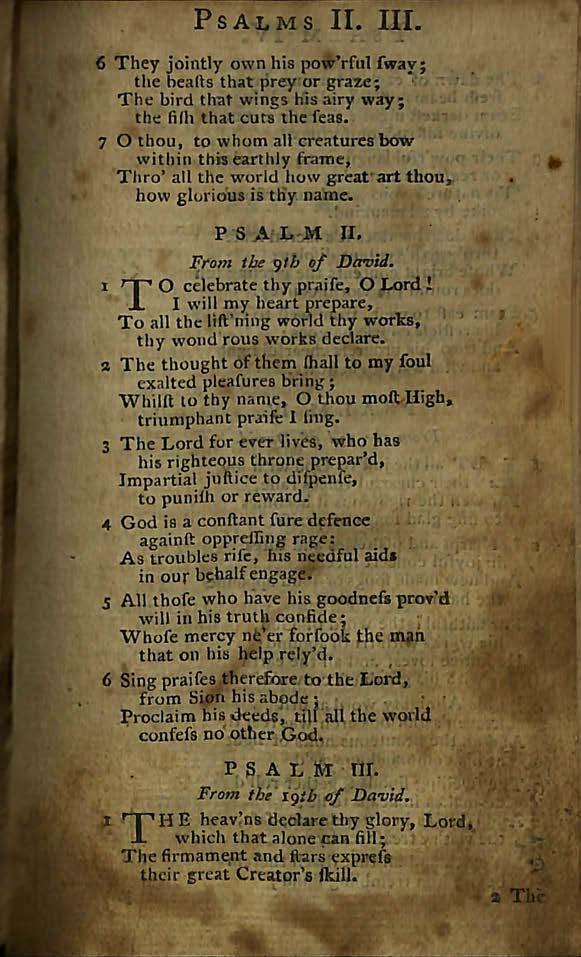 PSALMS II. III.
6 They jointly own his pow'rful ſway;
the beaſts that prey or graze;
The bird that wings his airy way;
the fiſh that cuts the ſeas.
7 O thou, to whom all creatures bow
within this earthly frame,
Thro' all the world how great art thou,
how glorious is thy name.
PSALM II.
From the 9th of David.
1 TO celebrate thy praiſe, O Lord!
I will my heart prepare,
To all the liſt'ning world thy works,
thy wond rous works declare.
2 The thought of them ſhall to my ſoul
exalted pleaſures bring;
Whilſt to thy name, O thou moſt High,
triumphant praiſe I ſing.
3 The Lord for ever lives, who has
his righteous throne prepar'd,
Impartial juſtice to diſpenſe,
to puniſh or reward.
4 God is a conſtant ſure defence
againſt oppreſſing rage:
As troubles riſe, his needful aids
in our behalf engage.
5 All thoſe who have his goodneſs prov'd
will in his truth confide;
Whoſe mercy ne'er forſook the man
that on his help rely'd.
6 Sing praiſes therefore to the Lord,
from Sion his abode;
Proclaim his deeds, till all the world
confeſs no other God.
PSALM III.
From the 19th of David.
1 THE heav'ns declare thy glory, Lord,
which that alone can fill;
The firmament and ſtars expreſs
their great Creator's ſkill.
2 The